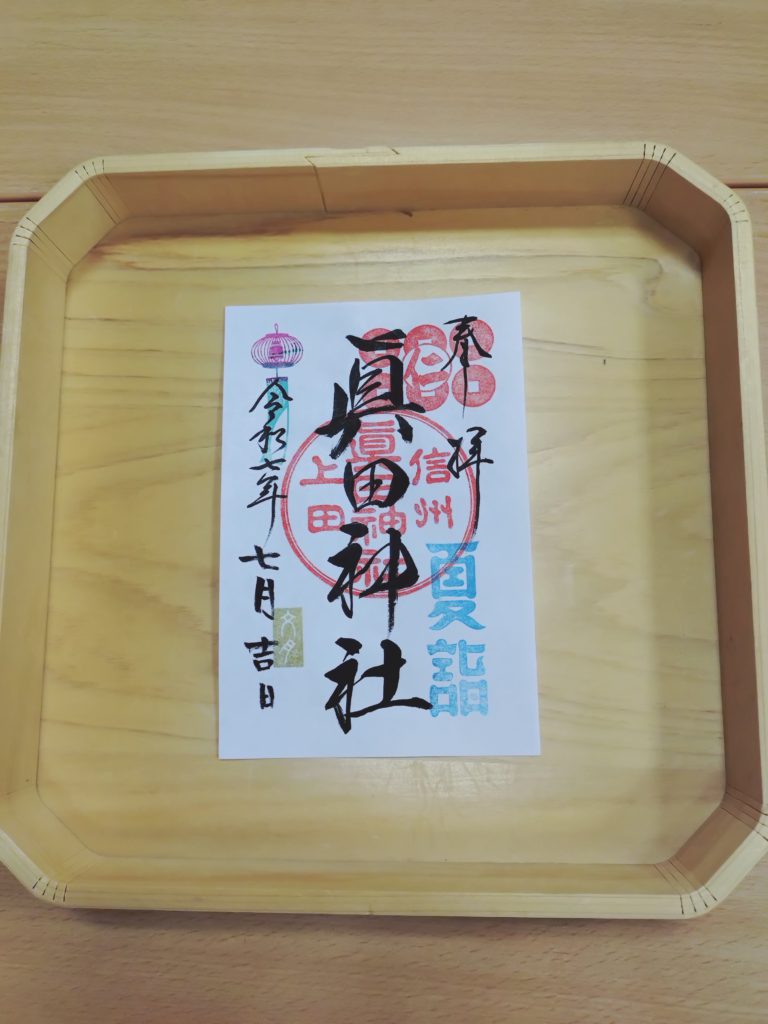 奉拝
夏詣
眞田神社
信州
眞田神社
上田
令和七年七月吉日